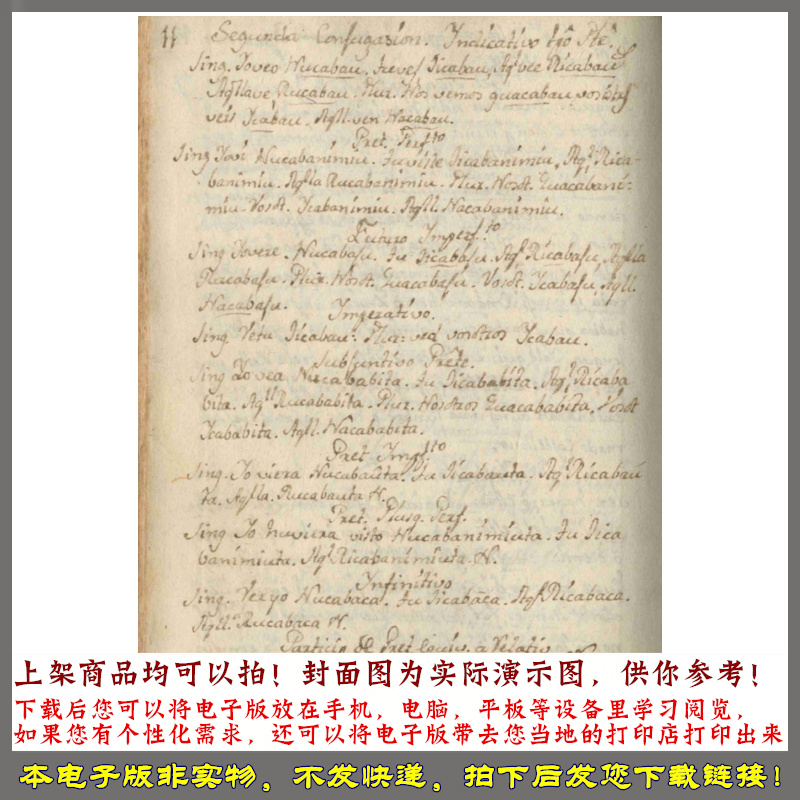 11 Segunda Conjugasion. Indicativo
Sing. Yoveo Nucabau, tuves Jicabau, Aql vee Ricabau
Aqllave Rucabau. Plur. Nos vemos guacabau, vosotrs
veis Ycabau. Aqll. ven Nacabau.
Pret. Perfto
Sing Yovi Nucabanimiu. tuviste Jicabanimiu, Aql. Rica-
banimiu. Aqlla Rucabanimiu. Plur. Nosot. Guacabani-
miu. Vosot. Ycabanimiu. Aqll. Nacabanimiu.
Futuro Imperf.to
Sing Yovere. Nucabasu. tu Jicabasu, Aql. Ricabasu, Aqlla
Rucabasu. Plur. Nosot. Guacabasu. Vosot. Ycabasu, Aqll.
Nacabasu.
Imperativo.
Sing Vetu Jicabau: Plur: ved vosotros Ycabau.
Subjuntivo Prete.
Sing Yo vea Nucababita. tu Jicababita. Aql. Ricaba
bita. Aqll Rucababita. Plur. Nosotros Guacababita, Vosot
Ycababita. Aqll. Nacababita.
Pret Impf.to
Sing. Yo viera Nucabauta. tu Jicabauta. Aql Ricabau
ta. Aqlla. Rucabauta
Pret. Plusq. Perf.
Sing Yo huviera visto Nucabanimiuta. tu Jica
banimiuta. Aql Ricabanimiuta.
Infinitivo
Sing. Veryo Nucabaca. tu Jicabaca. Aql. Ricabaca.
Aqll. Rucabaca
Particip de Pret equiv. a Relativ
上架商品均可以拍！封面图为实际演示图，供你参考！
下载后您可以将电子版放在手机，电脑，平板等设备里学习阅览，
如果您有个性化需求，还可以将电子版带去您当地的打印店打印出来
本电子版非实物，不发快递，拍下后发您下载链接！